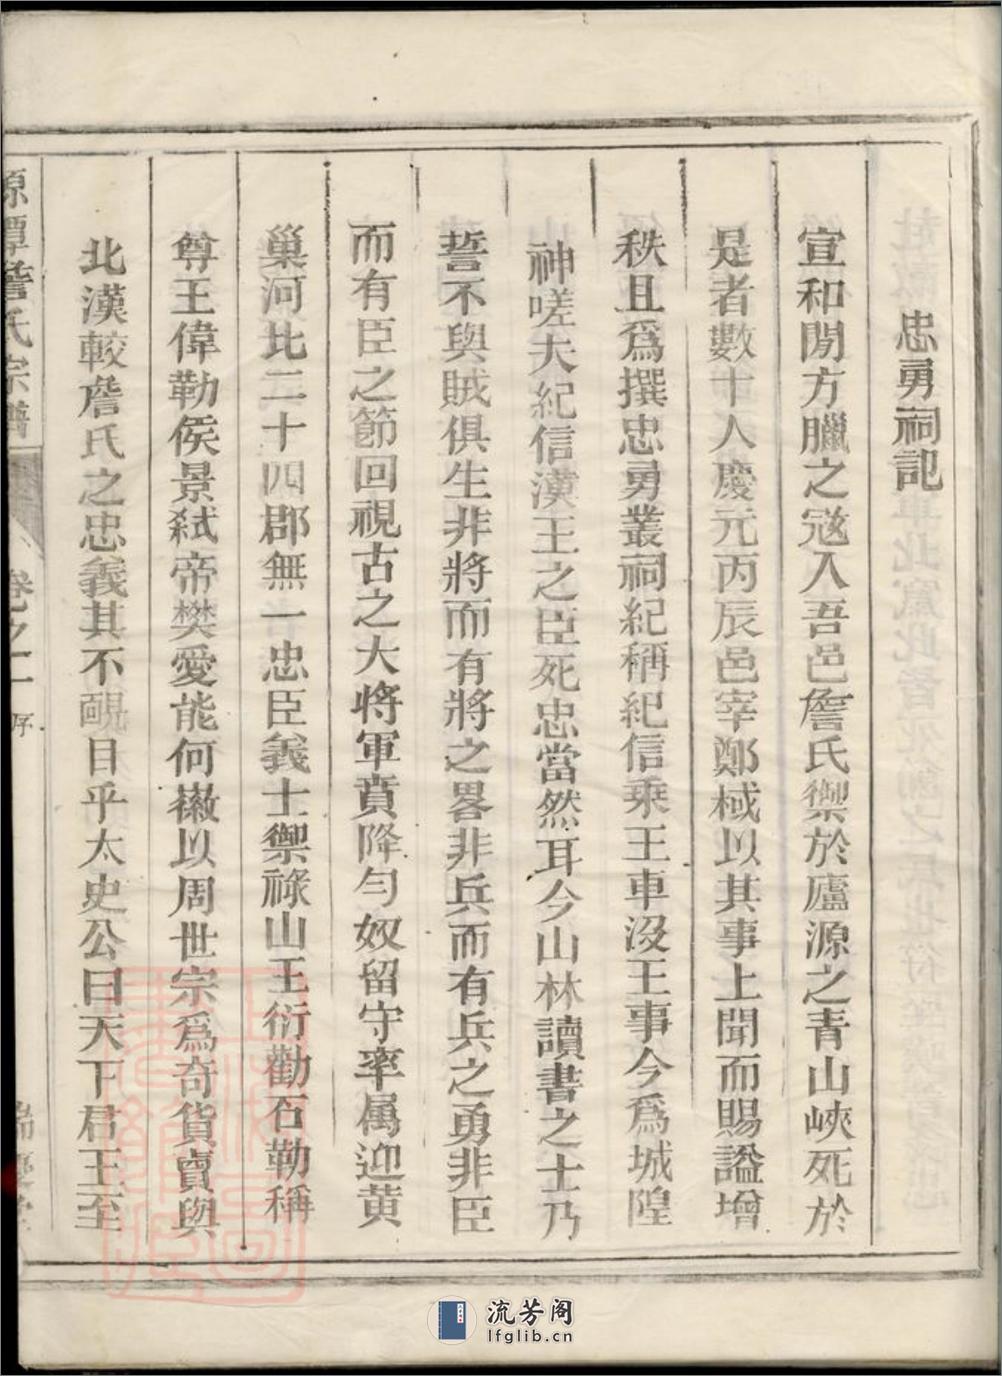 忠勇祠記
宣和閒方臘之冦入吾邑詹氏禦於廬源之青山峽死於
是者數十人慶元丙辰邑宰鄭棫以其事上聞而賜謚增
秩且爲撰忠勇叢祠紀稱紀信乘王車沒王事今爲城隍
神嗟夫紀信漢王之臣死忠當然耳今山林讀書之士乃
誓不與賊俱生非將而有將之畧非兵而有兵之勇非臣
而有臣之節回視古之大將軍賁降匀奴留守率属迎黄
巢河比二十四郡無一忠臣義士禦祿山王衍勸石勒稱
尊王偉勒侯景弑帝樊愛能何徽以周世宗爲奇貨賣與
北漢較詹氏之忠義其不靦目乎太史公曰天下君王至
源潭詹氏宗譜
卷之一
序
流芳阁
lfglib.cn